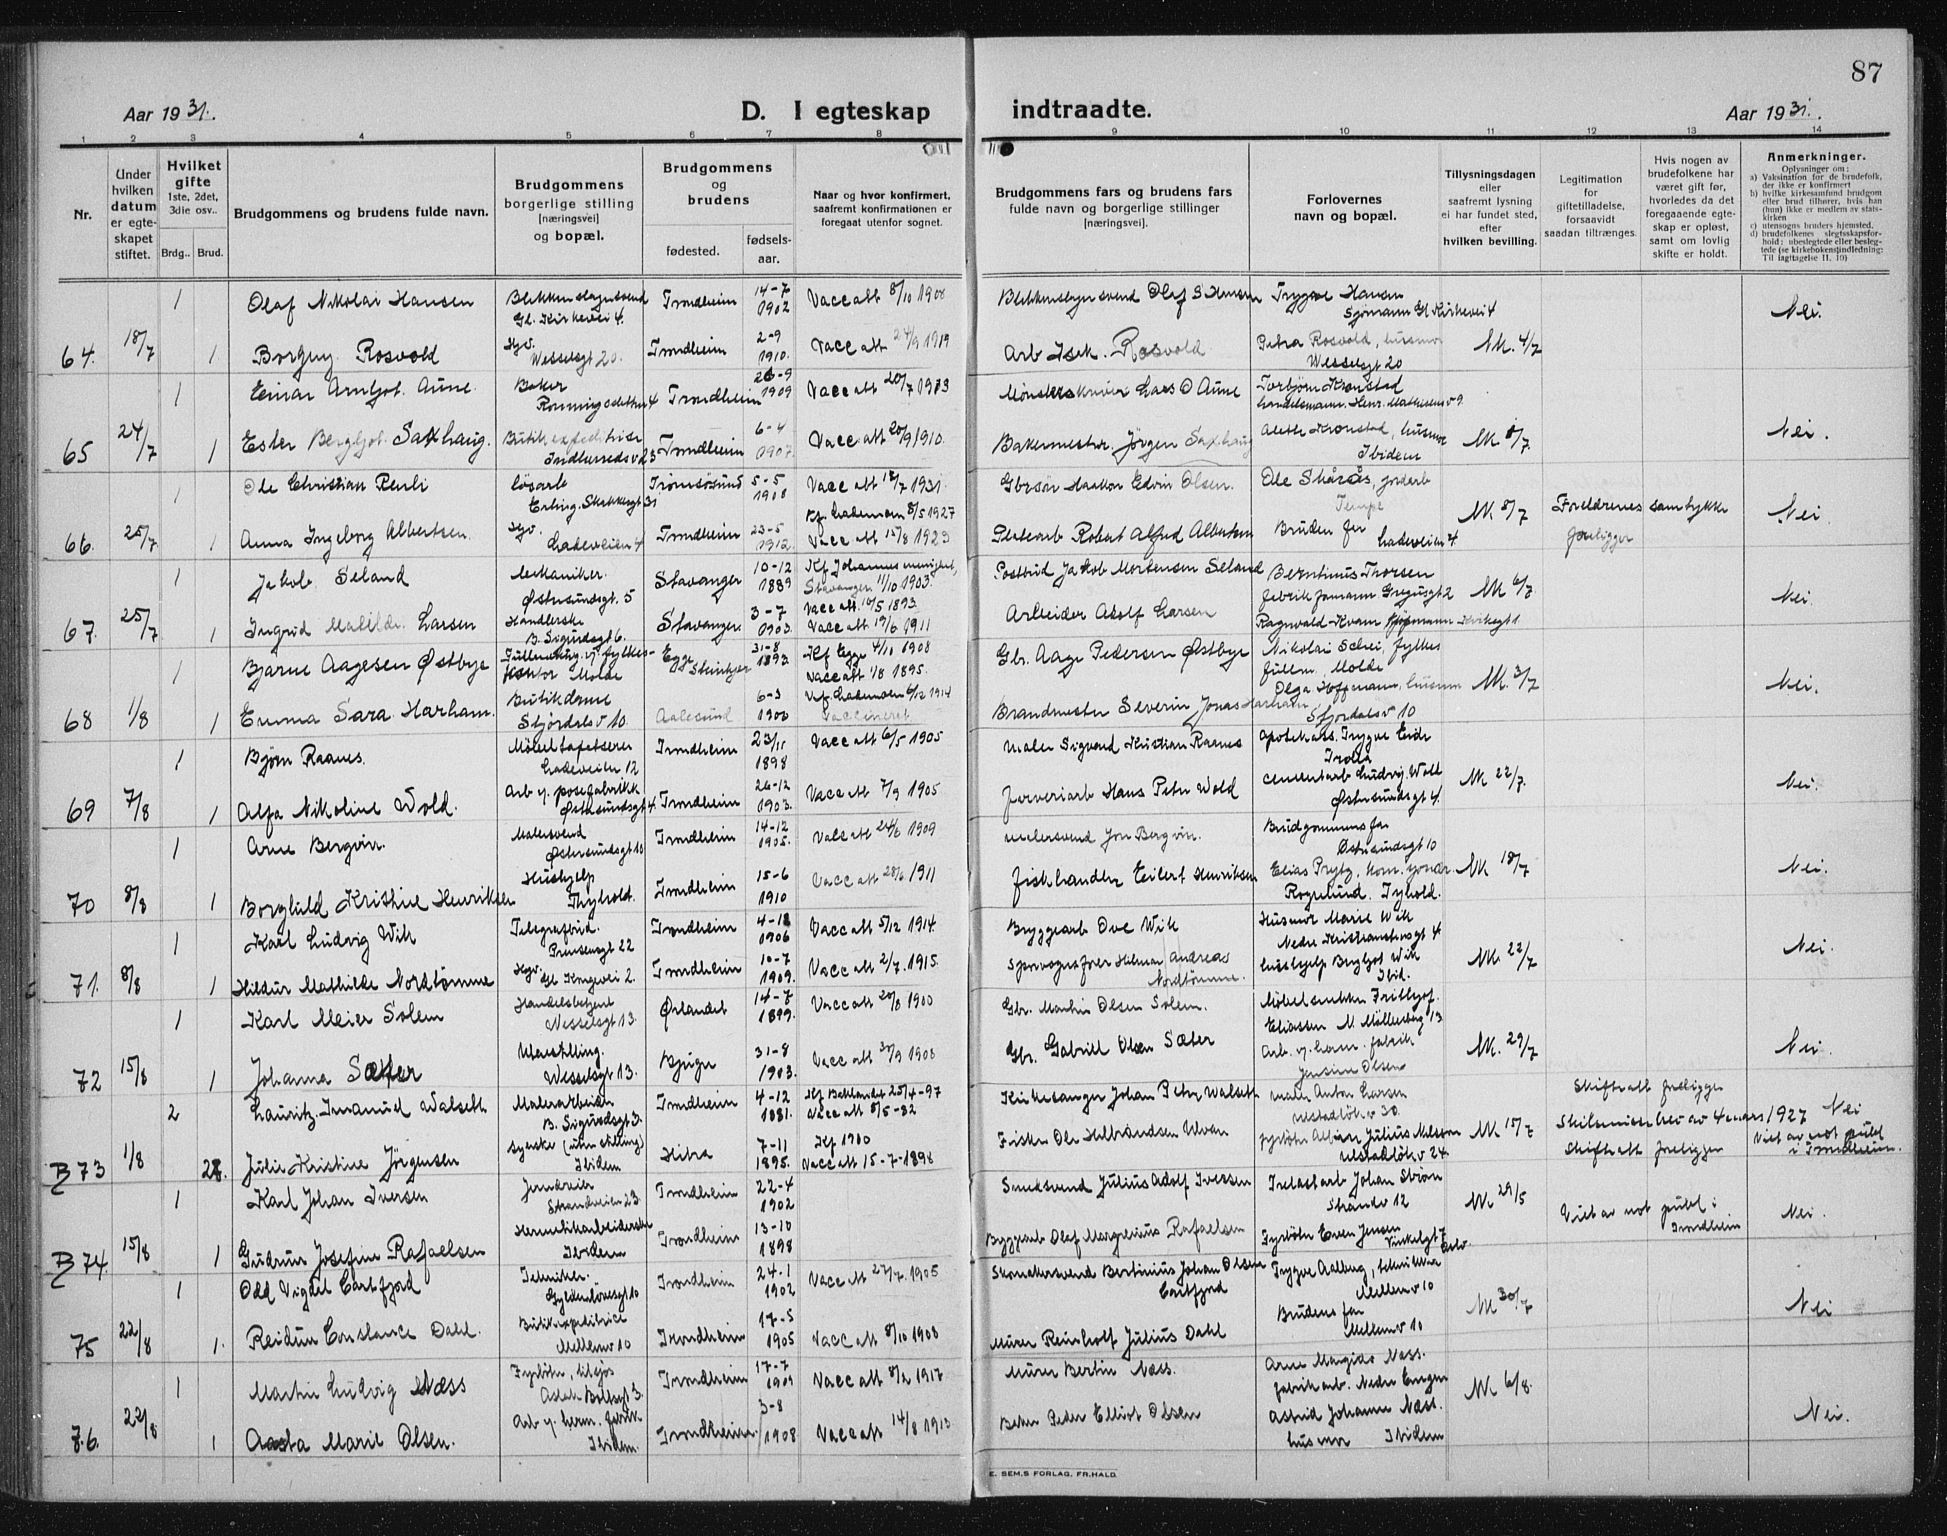 87
Aar 1931.
D. I egteskap
indtraadte.
Aar 1931.
1 2 3 4 5 6 7 8 9 10 11 12 13 14
Nr.
Under hvilken datum er egteskapet stiftet.
Hvilket gifte 1ste, 2det, 3die osv..
Brdg.. Brud.
Brudgommens og brudens fulde navn.
Brudgommens borgerlige stilling [næringsvei] og bopæl.
Brudgommens og brudens
fødested. fødselsaar.
Naar og hvor konfirmert, saafremt konfirmationen er foregaat utenfor sognet.
Brudgommens fars og brudens fars fulde navn og borgerlige stillinger [næringsvei].
Forlovernes navn og bopæl.
Tillysningsdagen eller saafremt lysning ei har fundet sted, efter hvilken bevilling.
Legitimation for giftetilladelse, forsaavidt saadan tiltrænges.
Hvis nogen av brudefolkene har været gift før, hvorledes da det foregaaende egteskap er opløst, samt om lovlig skifte er holdt.
Anmerkninger.
Oplysninger om:
a) Vaksination for de brudefolk, der ikke er konfirmert
b) hvilke kirkesamfund brudgom eller brud tilhører, hvis han (hun) ikke er medlem av statskirken
c) utensogns bruders hjemsted.
d) brudefolkenes slegtsskapsforhold: ubeslegtede eller beslegtede (se kirkebokens indledning: Til iagttagelse II, 10)
1 Olaf Nikolai Hansen Blikkenslagersvend Gl. Kirkevei 4. Trondheim 14-7 1902 Vacc att 8/10 1908 Blikkenslagersvend Olaf S Hansen Trygve Hansen Sjømann Gl Kirkevei 4 Nei.
64. 18/7 1 Borgny Rosvold Hjv. Wesselsgt 20. Trondheim 2-9 1910. Vacc att 24/9 1919 Arb Isak. Rosvold Petra Rosvold, husmor Wesselsgt 20 NK. 4/7
1 Einar Arnljot Aune. Baker Trondheim 26-9 1909 Vacc att 20/7 1913 Lars O Aune Torbjørn Kronstad handelsmann. Henr. Mathisens v 9.
65 24/7 1 Ester Bergljot Saxhaug. Butikexpeditrise Indherredsv 23 Trondheim 6-4 1907. Vacc. att 20/9 1910. Bakermester Jörgen Saxhaug Aleth Kronstad, husmor Ibidem NK 8/7. Nei.
1 Ole Christian Penli løsarb Erling Skakkesgt 31 Tromsøsund 5-5 1908 Vacc att 18/7 1931 Gbrsön Haakon Edvin Olsen. Ole Skårås, jordarb Tempe
66. 25/7 1 Anna Ingeborg Albertsen. Hjv. Ladeveien 4 Trondheim 23-5 1912. Kf Lademoen 8/5 1927 Vacc att 15/8 1923 Robert Alfred Albertsen Brudens far Ladeveien 4. NK. 8/7 Foreldrenes samtykke foreligger Nei
1 Jakob Seland Mekaniker. Østersundsgt. 5 Stavanger 10-12 1889 Kf Johannes menighet, Stavanger 11/10 1903. Vacc att. 10/5 1893. Postbud Jakob Mortensen Seland Berntinus Thorsen NK 6/7.
67. 25/7 1 Ingrid Matilde Larsen Handlerske B. Sigurdsgt 6. Stavanger. 3-7 1903. Vacc att. 19/6 1911 Arbeider Adolf Larsen Ragnvald Kvam Nei.
1 Bjarne Aagesen Østbye Molde Egge Steinkjer 31-8 1893. Kf Egge 4/10 1908 Vacc att 1/8 1895. Gbr. Aage Pedersen Østbye Nikolai Schei, fylkes fullm. Molde
68 1/8 1 Emma Sara Harham. Butikdame Stjördalsv 10. Aalesund 6-3 1900 Kf Lademoen 6/12 1914 Vaccineret Brandmester Severin Jonas Harham Olga Hoffmann, husmor Stjordalsv 10 NK. 3/7 Nei.
1 Björn Raanes. Møbeltapetserer Ladeveien 12 Trondheim 23/11 1898 Vacc att 6/5 1905 Maler Sigvard Kristian Raanes Apotekass. Trygve Eide
69 7/8 1 Alfa Nikoline Wold. Arb v. posefabrikk Østersundsgt 4 Trondheim 26-12 1903. Vacc att 7/9 1905 Farveriarb Hans Peter Wold Cementarb Ludvig Wold Østersundsgt 4. NK 22/7. Nei.
1 Arne Bergvin. Malersvend Østersundsgt 10 Trondheim 14-12 1905. Vacc att 24/6 1909 malersvend Jon Bergvin. Brudgommens far Østersundsgt 10
70 8/8 1 Borghild Kristine Henriksen Hushjelp Thyhold. Trondheim 15-6 1910 Vacc att 28/6 1911 fiskhandler Eilert Henriksen Rogelund. Tyhold. NK 18/7 Nei.
1 Karl Ludvig Wik Telegrafbud. Prinsensgt 22 Trondheim 4-12 1906 Vacc att 5/12 1914. Bryggearb Ove Wik Husmor Marie Wik Nedre Kristianstensgt 4
71. 8/8 1 Hildur Mathilde Nordtømme Hjv. Gl Kongevei 2. Trondheim 10-7 1909. Vacc att 2/7. 1915. Sporvognsfører Hilmar Andreas Nordtømme. hushjelp Bergljot Wik Ibid. NK. 22/7 Nei.
1 Karl Meier Solem Handelsbetjent Wesselsgt 13. Ørlandet 14-7 1899. Vacc att 20/8 1900 Gbr. Martin Olsen Solem. Møbelsnekker Frithjof. Eliassen N. Möllenberg 13
72 15/8 1 Johanna Sæter Uten stilling. Wesselsgt 13. Bjugn 31-8 1903. Vacc att 30/9 1908 Gbr. Gabriel Olsen Sæter Arb. v. herm. fabrik Jensine Olsen NK. 29/7 Nei.
2 Lauritz Imanuel Walseth Malerarbeider B. Sigurdsgt 3. Trondheim 4-12 1881. Kf Baklandet 25/4-97 Vacc att 8/5-82 Kirkesanger Johan Peter Walseth maler Anton Larsen 30. Skifteatt foreligger Nei
B 73 1/8 2. Julie Kristine Jörgensen syerske (uten stilling) Ibidem Hitra 7-11 1895. Kf 1910 Vacc att 15-7-1898 Fisker Ole Helbrandsen Ulvan fyrbøter Albin Julius Nilsson Ulstadløkv 24. NK 15/7 Skilsmissebev av 4 mars 1927 Skifteatt foreligger Viet av not publ i Trondheim.
1 Karl Johan Iversen Jerndreier Strandveien 23. Trondheim 22-4 1902 Smedsvend Julius Adolf Iversen Trelastarb Johan Ström Strandv 12 NK 29/5
B 74. 15/8 1 Gudrun Josefine Rafaelsen Hermetikarbeiderske Ibidem Trondheim 13-10 1898 Byggearb Olaf Margrenius Rafaelsen Fyrbøter Even Jensen Vinkelgt 7 Viet av not publ. i Trondheim Nei.
1 Odd Vigdel Tekniker. Gyldenløvesgt 10 Trondheim 24-1 1902 Vacc att 27/7. 1905 Skomakersvend Bertinius Johan Olsen Trygve Aalberg, tekniker Mellemv 10
75 22/8 1. Reidun Constance Dahl. Butikexpeditrice Mellemv 10 Trondheim 17-5 1905 Vacc att 8/10 1908 Murer Reinholt Julius Dahl Brudens far Mellemv 10 NK 30/7 Nei
1 Martin Ludvig Næss Fyrbøter, tilsjøs Aslak Boltsgt 3. Trondheim 17-7 1909 Vacc att 8/2 1917 Murer Bertin Næss. Arne Margido Næss. fabrikarb. Nedre Engen NK 6/8.
76. 22/8 1 Aasta Marie Olsen. Arb v. herm. fabrik Ibidem. Trondheim. 3-8 1908 Vacc att 14/8 1913 Peder Elliot Olsen Astrid Johanne Næss. husmor Ibidem Nei.
E. SEM,S FORLAG, FR.HALD.